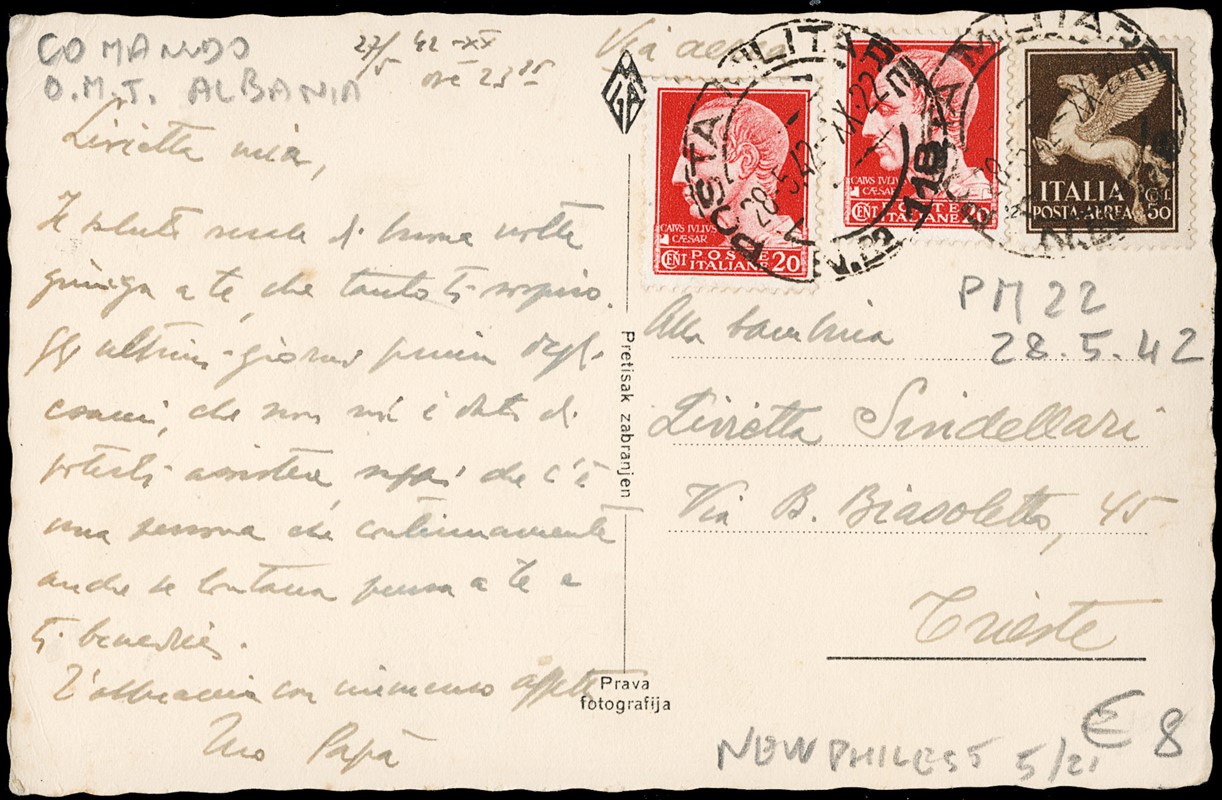 COMANDO
D.M.T. ALBANIA
27/5 42-XX
ore 23
Via aerea
Livietta mia,
Il saluto di buona notte
giunga a te, che tanto ti
Gli ultimi giorni prima degli
esami, che non mi è dato di
poterti assistere, sappi che c'è
una persona che continuamente
anche se lontana pensa a te e
ti benedice.
T'abbraccia con immenso affetto
Tuo Papà
MGA
Pretisak zabranjen
Prava
fotografija
POSTA MILITARE
28-5.42
XX.22
N.22
CAIVS IVLIVS
CÆSAR
CENT POSTE
ITALIANE 20
CAIVS IVLIVS
CÆSAR
CENT POSTE
ITALIANE 20
118
POSTA MILITARE
ITALIA
POSTA-AEREA CENT. 50
PM 22
28.5.42
Alla bambina
Livietta Sindellari
Via B. Biasoletto, 45
Trieste
€ 8
NEWPHILEST 5/21